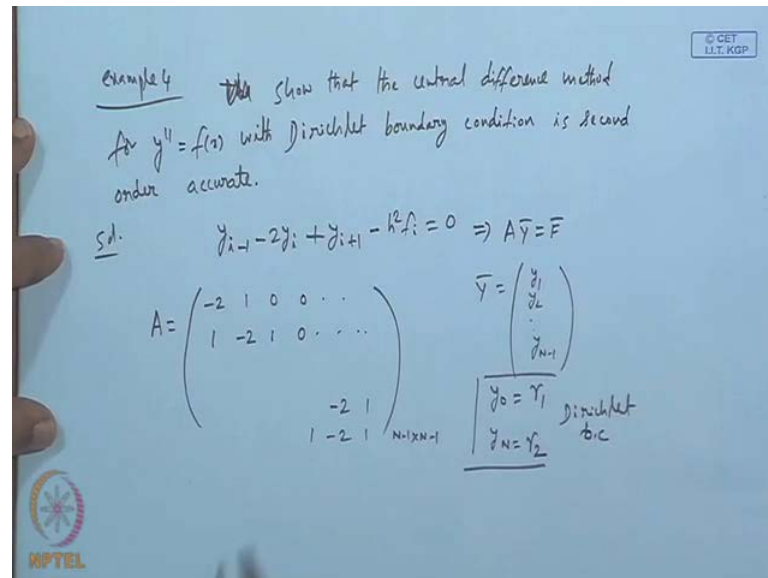 © CET
I.I.T. KGP
example 4 show that the central difference method
for y'' = f(x) with Dirichlet boundary condition is second
order accurate.
Sol. y_{i-1} - 2y_i + y_{i+1} - h² f_i = 0 ⇒ A Ȳ = F̄
A = ( -2 1 0 0 . .
1 -2 1 0 . . . .
-2 1
1 -2 1 ) N-1×N-1
Ȳ = ( y_1
y_2
.
.
y_{N-1} )
y_0 = γ_1
y_N = γ_2
Dirichlet
b.c
NPTEL